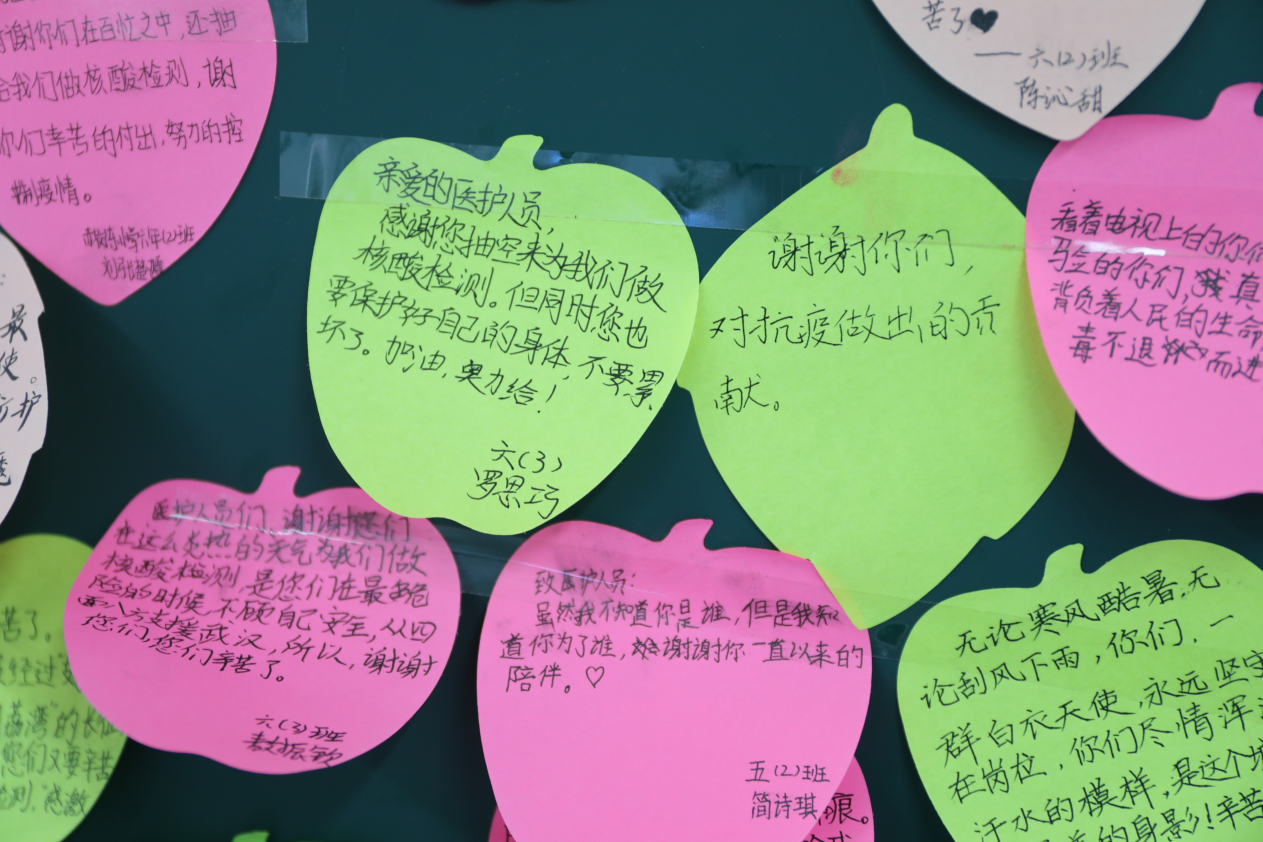 谢你们在百忙之中,还抽
给我们做核酸检测,谢
你们辛苦的付出,努力的控
制疫情。
苦了♥
—六(2)班
陈沁甜
亲爱的医护人员,
感谢您抽空来为我们做
核酸检测。但同时您也
要保护好自己的身体,不要累
坏了。加油,奥力给!
六(3)
罗思巧
谢谢你们,
对抗疫做出的贡
献。
看着电视上的你们
的你们,我真
背负着人民的生命
毒不退而进
最
使。
护
医护人员们,谢谢您们
在这么炎热的天气为我们做
核酸检测,是您们在最危
险的时候,不顾自己安全,从四
面八方支援武汉,所以,谢谢
您们,您们辛苦了。
六(3)班
致医护人员:
虽然我不知道你是谁,但是我知
道你为了谁,谢谢你一直以来的
陪伴。♡
五(2)班
简诗琪
痕。
无论寒风酷暑,无
论刮风下雨,你们,一
群白衣天使,永远坚守
在岗位,你们尽情浑
汗水的模样,是这个
的身影!辛苦
苦了。
经过
荔湾"的长
您们又要辛苦
检测,感激